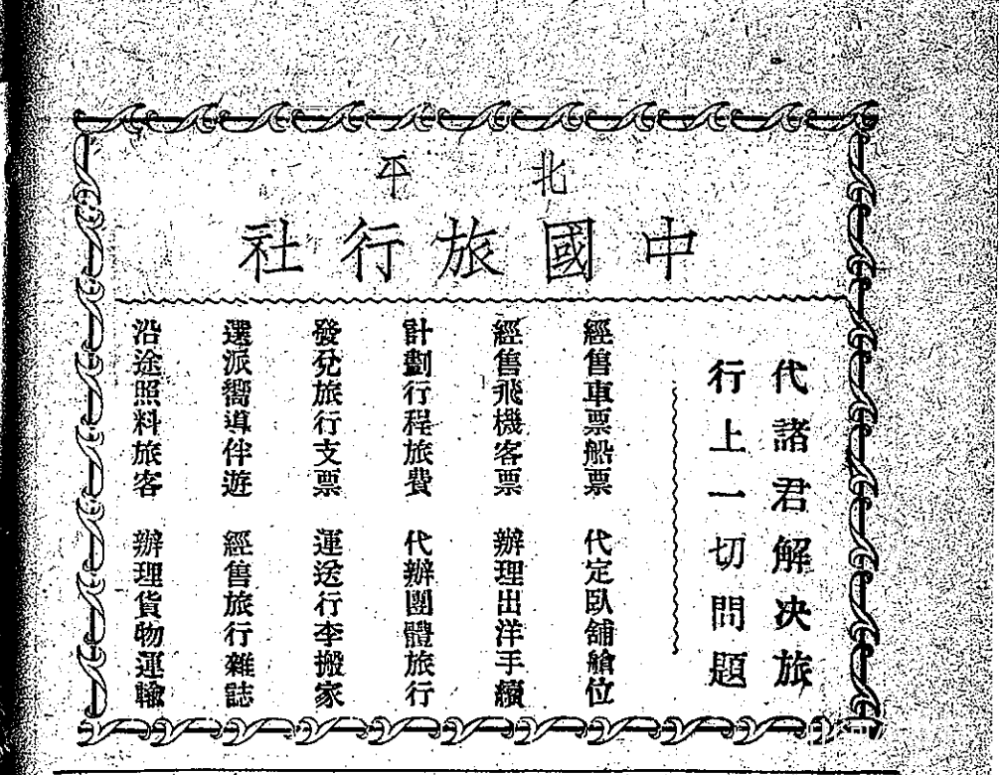 北平
中國旅行社
代諸君解决旅
行上一切問題
經售車票船票 代定臥舖艙位
經售飛機客票 辦理出洋手續
計劃行程旅費 代辦團體旅行
發兌旅行支票 運送行李搬家
選派嚮導伴遊 經售旅行雜誌
沿途照料旅客 辦理貨物運輸